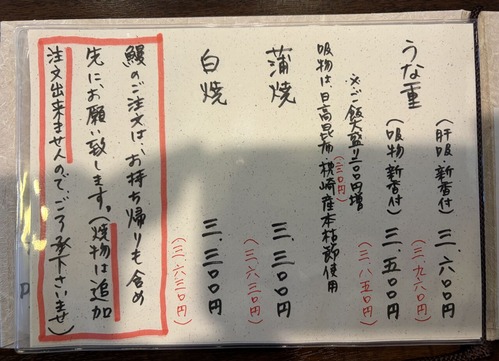 うな重
(肝吸・新香付) 三、六〇〇円
(三、九六〇円)
(吸物・新香付) 三、五〇〇円
(三、八五〇円)
※ご飯大盛り二〇〇円増
(二二〇円)
吸物は、日高昆布・枕崎産本枯節使用
蒲焼 三、三〇〇円
(三、六三〇円)
白焼 三、三〇〇円
(三、六三〇円)
鰻のご注文は、お持ち帰りも含め
先にお願い致します。(焼物は追加
注文出来ませんのでご了承下さいませ)